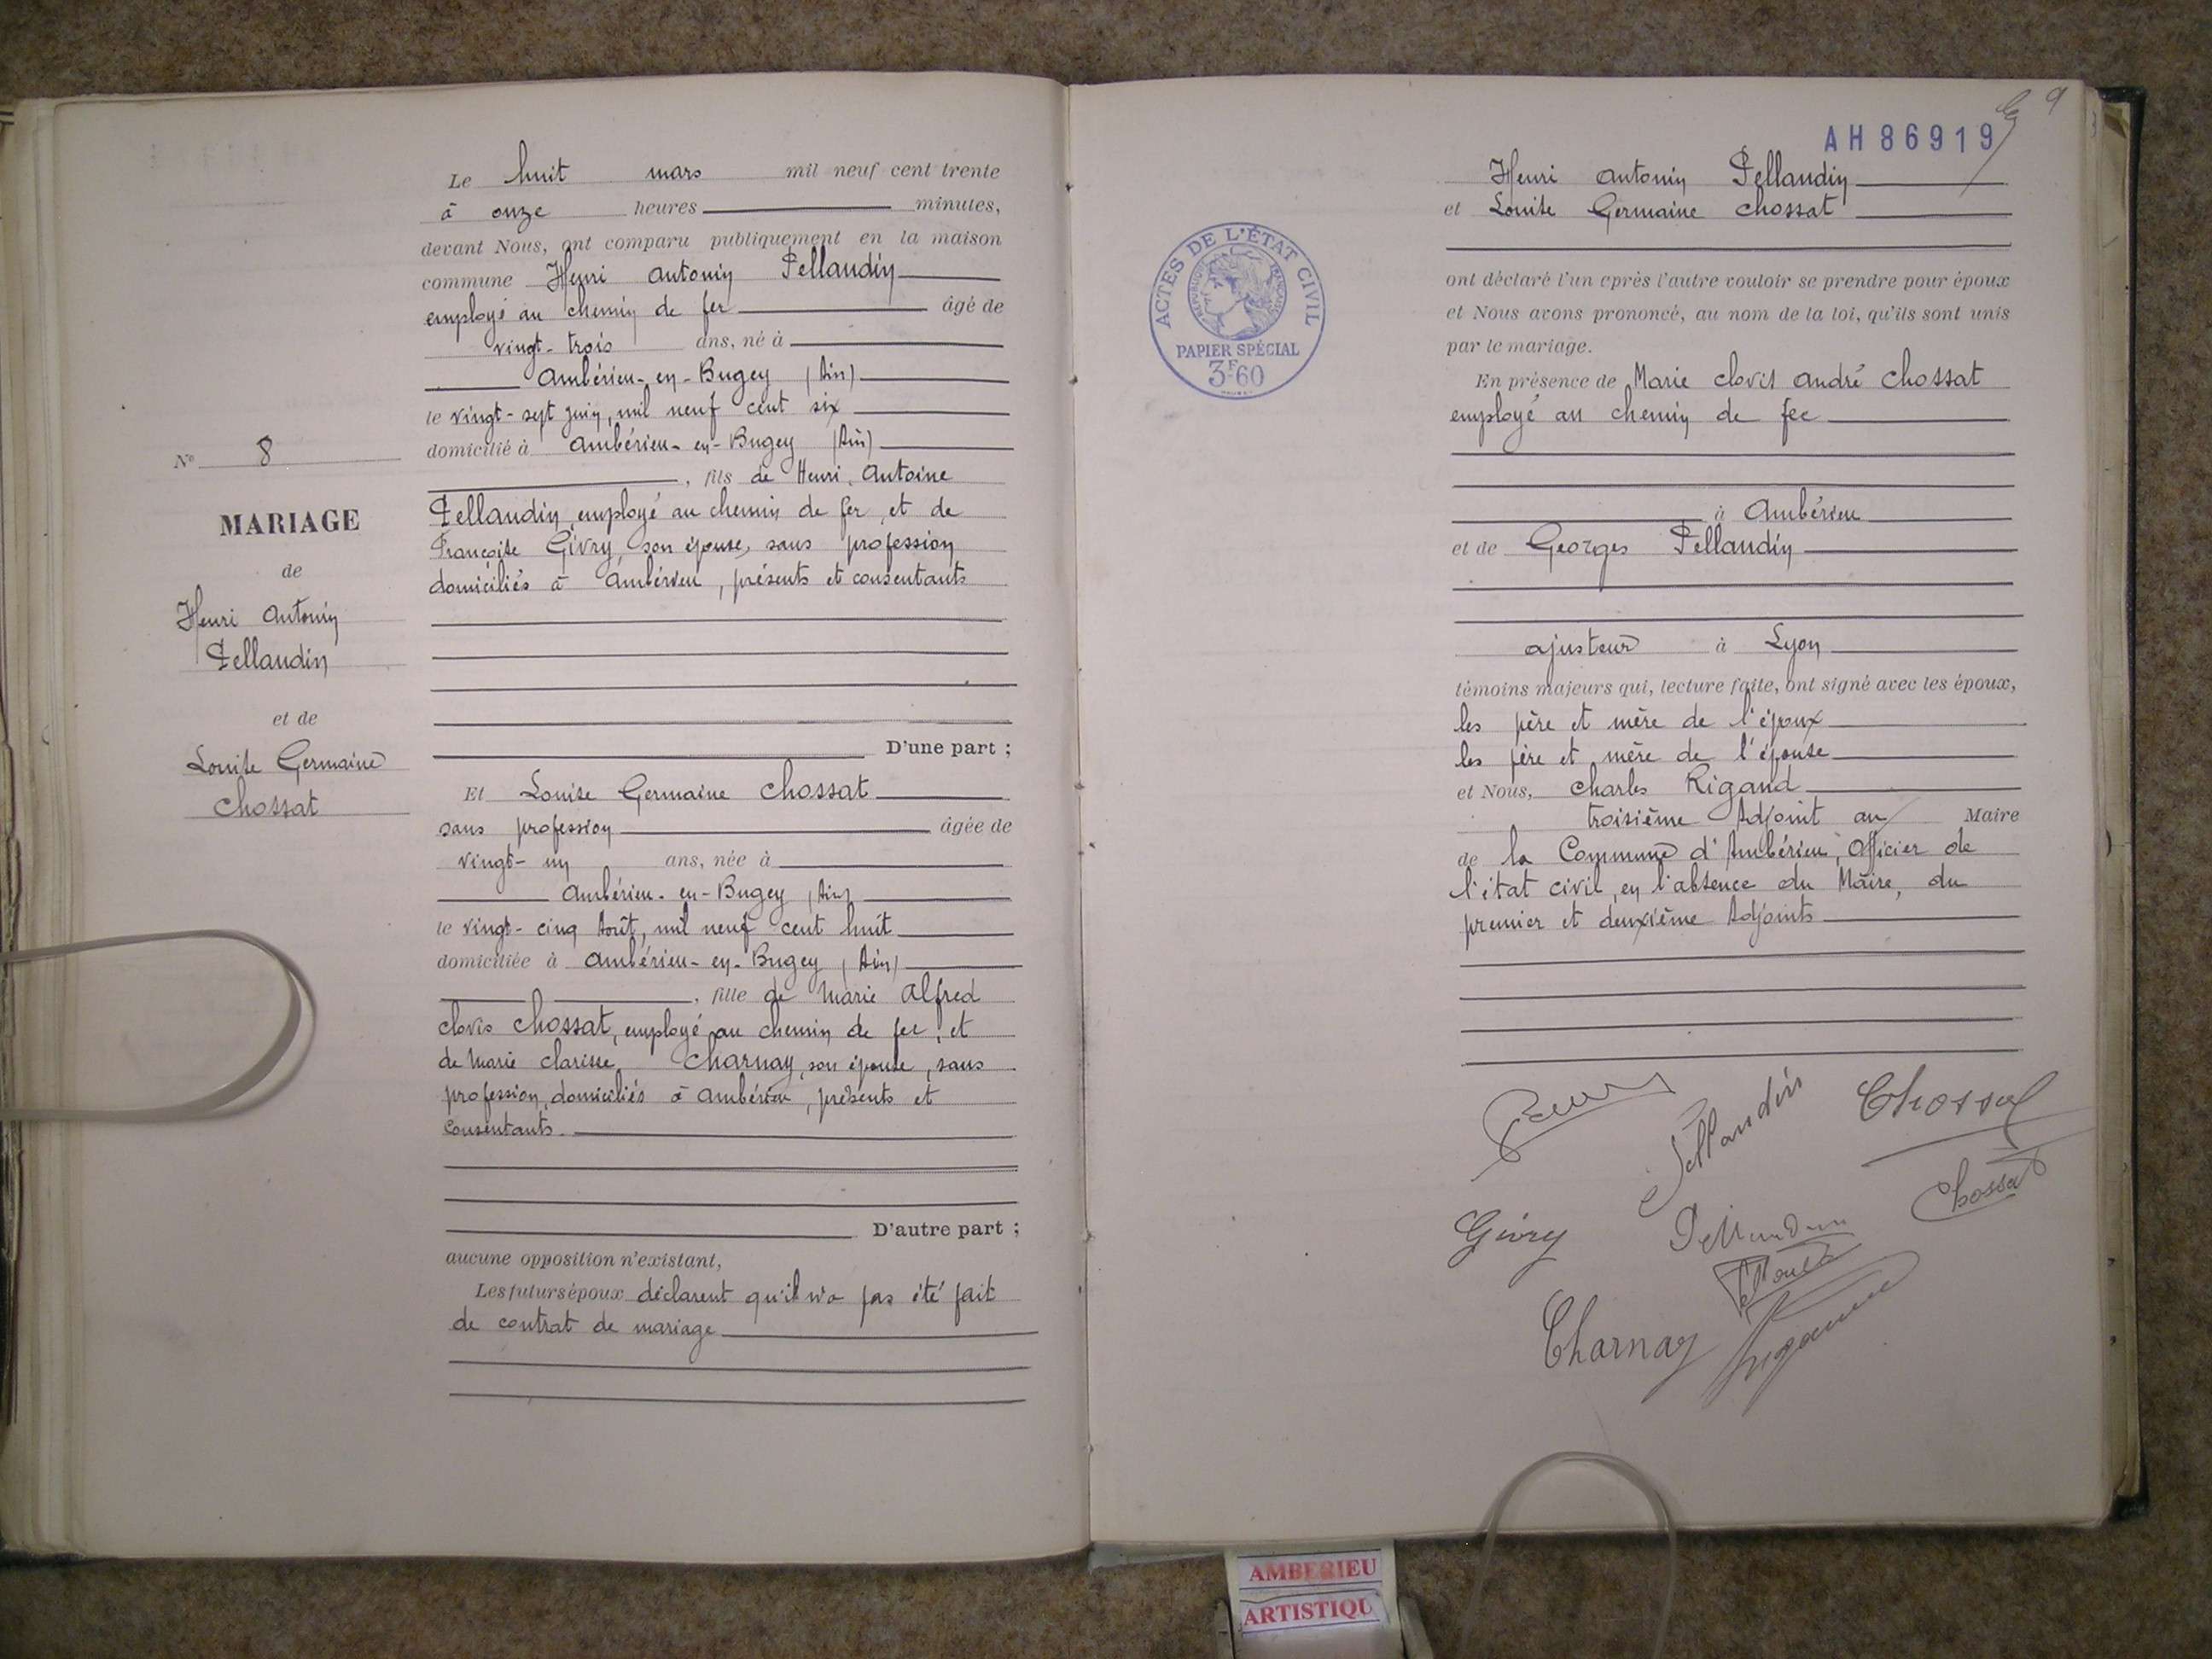 Le huit mars mil neuf cent trente
à onze heures minutes,
devant Nous, ont comparu publiquement en la maison
commune Henri Antonin Pellaudin
employé au chemin de fer âgé de
vingt-trois ans, né à
Ambérieu-en-Bugey (Ain)
le vingt-sept juin, mil neuf cent six
domicilié à Ambérieu-en-Bugey (Ain)
, fils de Henri, Antoine
Pellaudin, employé au chemin de fer, et de
Françoise Givry, son épouse, sans profession
domiciliés à Ambérieu, présents et consentants
D'une part ;
Et Louise Germaine Chossat
sans profession âgée de
vingt-un ans, née à
Ambérieu-en-Bugey (Ain)
le vingt-cinq Août, mil neuf cent huit
domiciliée à Ambérieu-en-Bugey (Ain)
, fille de Marie Alfred
Clovis Chossat, employé au chemin de fer, et
de Marie Clarisse Charnay, son épouse, sans
profession, domiciliés à Ambérieu, présents et
consentants.
D'autre part ;
aucune opposition n'existant,
Les futurs époux déclarent qu'il n'a pas été fait
de contrat de mariage
N° 8
MARIAGE
de
Henri Antonin
Pellaudin
et de
Louise Germaine
Chossat
9
AH 86919
Henri Antonin Pellaudin
et Louise Germaine Chossat
ont déclaré l'un après l'autre vouloir se prendre pour époux
et Nous avons prononcé, au nom de la loi, qu'ils sont unis
par le mariage.
En présence de Marie Clovis André Chossat
employé au chemin de fer
à Ambérieu
et de Georges Pellaudin
ajusteur à Lyon
témoins majeurs qui, lecture faite, ont signé avec les époux,
les père et mère de l'époux
les père et mère de l'épouse
et Nous, Charles Rigaud
troisième Adjoint au Maire
de la Commune d'Ambérieu, Officier de
l'état civil, en l'absence du Maire, du
premier et deuxième Adjoints
ACTES DE L'ÉTAT CIVIL
RÉPUBLIQUE FRANÇAISE
PAPIER SPÉCIAL
3F60
Pellaudin
Chossat
Chossat
Givry
Pellaudin
Charnay
AMBERIEU
ARTISTIQU